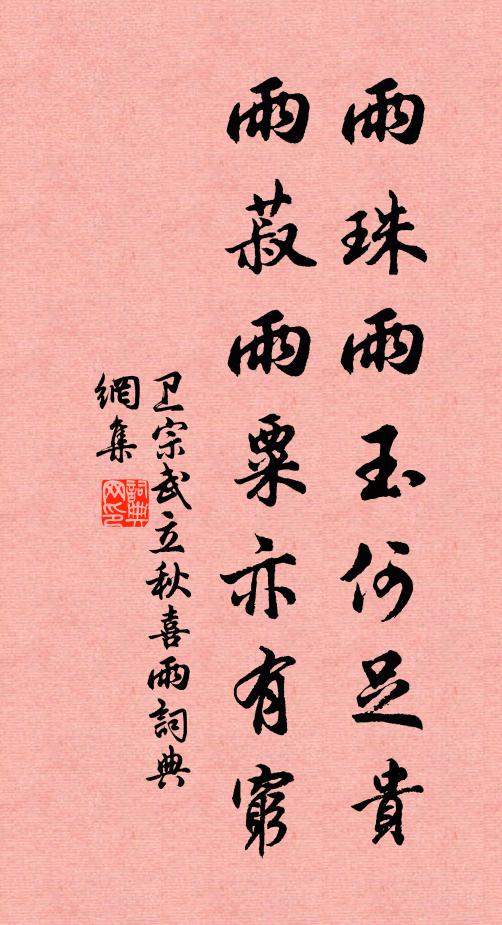 雨珠雨玉何足貴
雨菽雨粟亦有窮
卫宗武立秋喜雨詞典
網集
詞典
网印